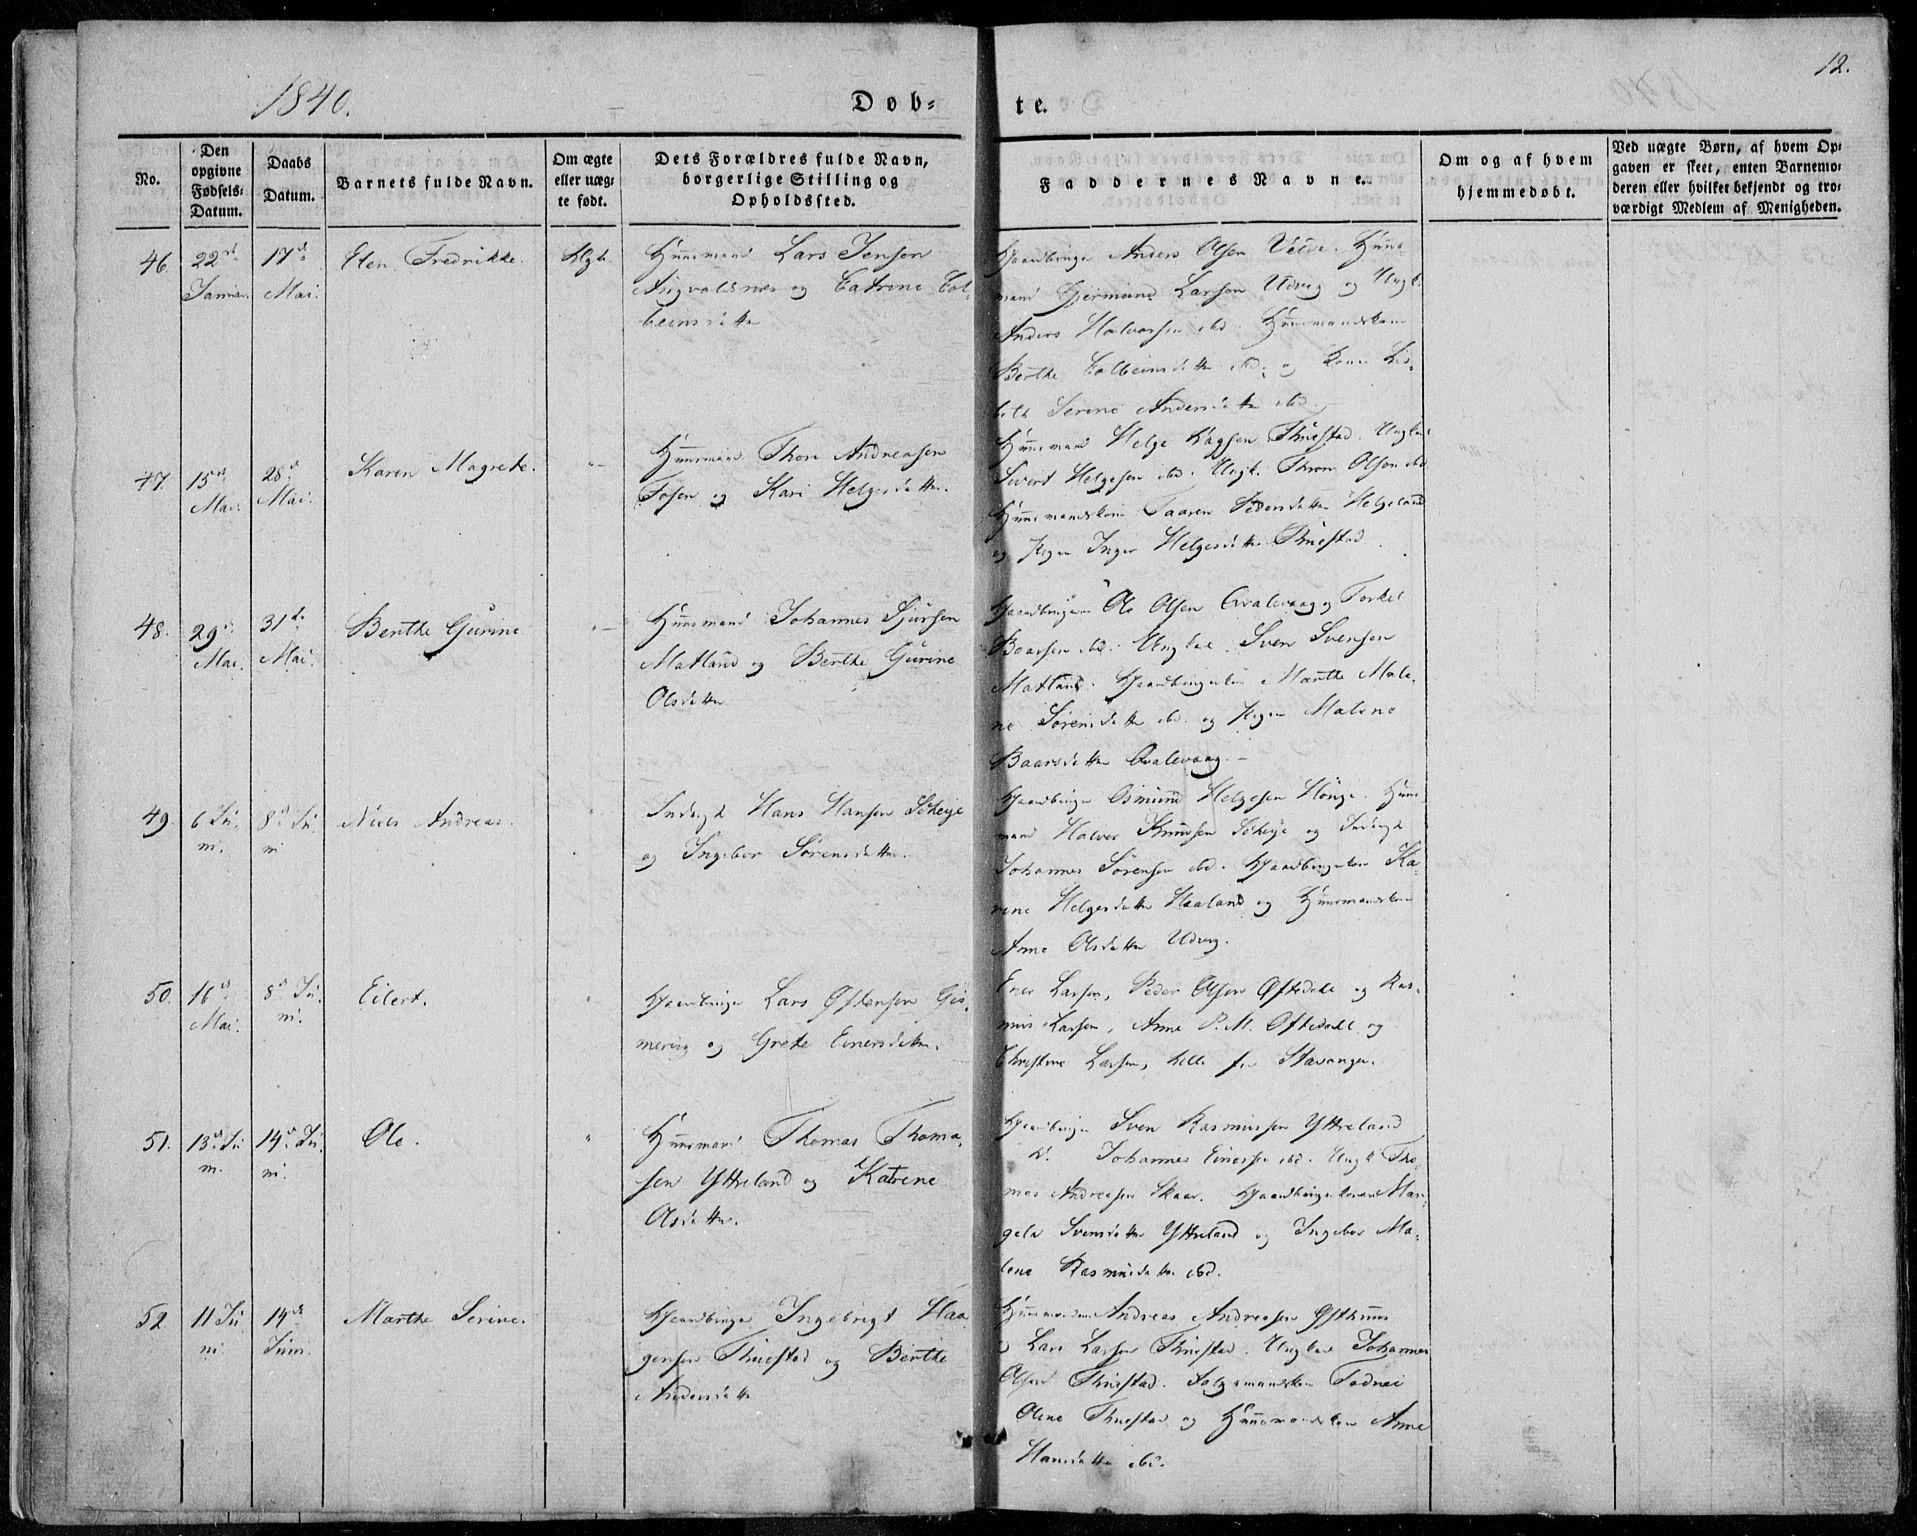 1840.
Døb-
te.
12.
No.
Den opgivne Fødsels-Datum.
Daabs Datum.
Barnets fulde Navn.
Om ægte eller uæg-te født.
Dets Forældres fulde Navn, borgerlige Stilling og Opholdssted.
Faddernes Navne.
Om og af hvem hjemmedøbt.
Ved uægte Børn, af hvem Op-gaven er skeet, enten Barnemo-deren eller hvilket bekjendt og tro-værdigt Medlem af Menigheden.
46.
22
Januar.
17
Mai.
Elen Fredrikke.
Huusmand Lars Jensen
og Catrine Tol-
beinsdatter
Gaardbruger Anders Olsen Velde. Huus-
mand Gjermund Larsen Udvig og Ungk.
Anders Halvorsen ibd. Huusmandskone
Berthe Tolbeinsdatter ibd. og Kone Lis-
beth Serine Andersdatter ibd.
47.
15
Mai.
28
Mai.
Karen Magrete.
Huusmand Thore Andreasen
Fosen og Kari Helgesdatter.
Huusmand Helge Thuestad. Ungkarl
Sivert Helgesen ibd. Ungk. Thron Olsen ibd.
Huusmandskone Taaren Pedersdatter Helgeland
og Pigen Inger Helgesdatter Thuestad.
48.
29
Mai.
31
Mai.
Berthe Gurine
Huusmand Johannes Sjursen
Matland og Berthe Gurine
Olsdatter
Gaardbrugerne Ole Olsen Qvalevaag og Torkel
Baarsen ibd. Ungkarl Sven Svensen
Matland. Gaardbrugerkone Marthe Male-
ne Sørensdatter ibd. og Pigen Malene
Baarsdatter Qvalevaag.
49.
6 Ju-
ni.
8 Ju-
ni
Niels Andreas.
Inderst Hans Hansen Sökeye
og Ingebor Sørensdatter.
Gaardbruger Osmund Helgesen Hauge. Huus-
mand Halvor Knudsen Sökeye og Inderst
Johannes Sørensen ibd. Gaardbrugerkone Ka-
rene Helgesdatter Haaland og Huusmandskone
Anne Olsdatter Udvig.
50.
16
Mai.
8 Ju-
ni.
Eilert.
Gaardbruger Lars Øftensen Gis-
mervig og Grete Einersdatter.
Ener Larsen, Peder Olsen Øftedahl og Ras-
mus Larsen, Anne P. M. Oftedahl og
Christine Larsen, alle fra Stavanger.
51.
13 Ju-
ni.
14 Ju-
ni.
Ole.
Huusmand Thomas Thoma-
sen Yttreland og Katrine
Olsdatter.
Gaardbruger Sven Rasmussen Yttreland
Johannes Einersen ibd. Ungk. Tho-
mas Andreasen Skaar. Gaardbrugerkonerne Mar-
gela Svensdatter Yttreland og Ingebor Ma-
lene Rasmusdatter ibd.
52.
11 Ju-
ni.
14
Juni.
Marthe Serine.
Gaardbruger Ingebrigt Haa-
gensen Thuestad og Berthe
Andersdatter
Huusmændene Andreas Andreasen Østhuus
Lars Larsen Thuestad. Ungkarl Johannes
Olsen Thuestad. Todnei
Olene Thuestad og Huusmandskone Anne
Hansdatter ibd.